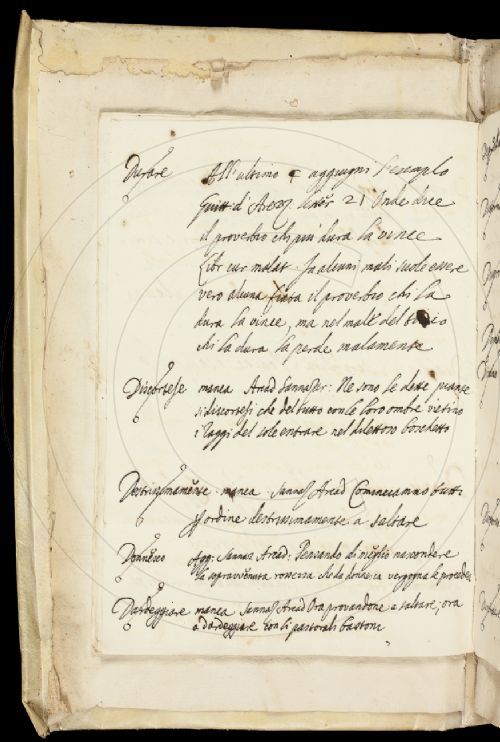 Durare All'ultimo § aggiugni l'esemplo
Guitt d'Arez. letter 21 Onde dice
il proverbio chi più dura la vince
Libr cur malat. In alcuni mali suole essere
vero alcuna fiata il proverbio chi la
dura la vince, ma nel male del
chi la dura la perde malamente
Discortese manca Arcad Sannazar: Ne sono le dette piante
sì discortesi che del tutto con le loro ombre vietino
i raggi del sole entrare nel dilettoso boschetto
Destrissimamente manca Sannaz Arcad Cominciammo tutti
ordine destrissimamente a saltare
Donnesco Sannaz Arcad: Pensando di meglio nascondere
la sopravvenuta rossezza che da donnesca vergogna le procedea
Dardeggiare manca Sannaz Arcad Ora provandone a saltare, ora
a dardeggiare con li pastorali bastoni